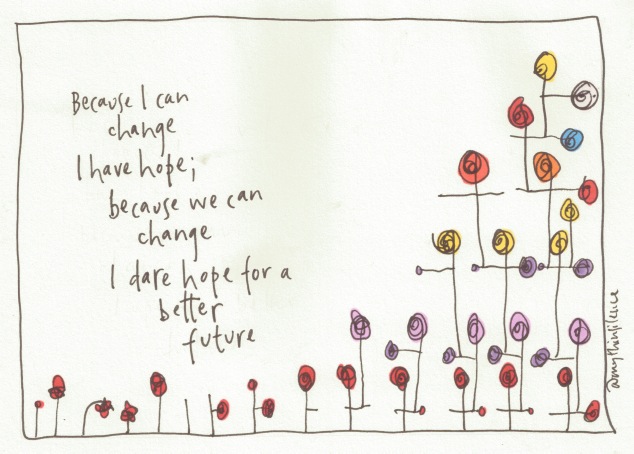 Because I can
change
I have hope;
because we can
change
I dare hope for a
better
future